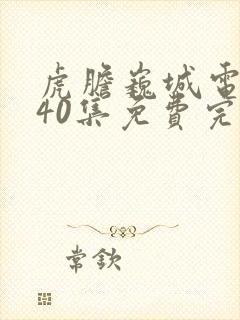 虎膽巍城電
40集免費完
常欽